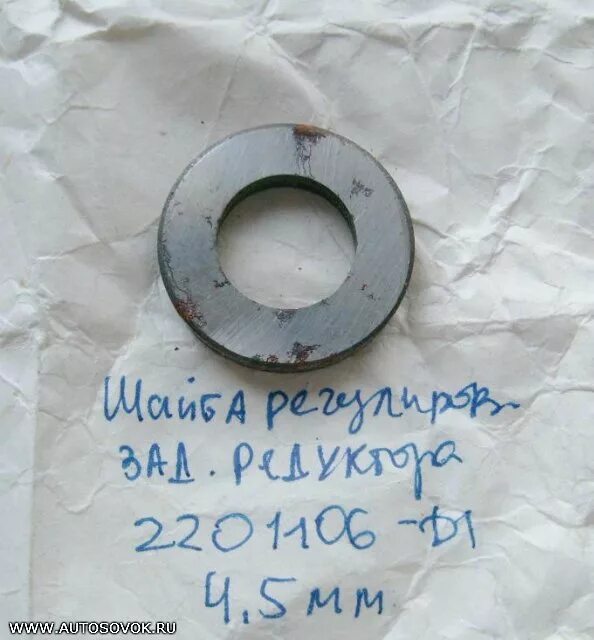 Шайба регулиров
зад. редуктора
2201106-Д1
4,5 мм
WWW.AUTOSOVOK.RU